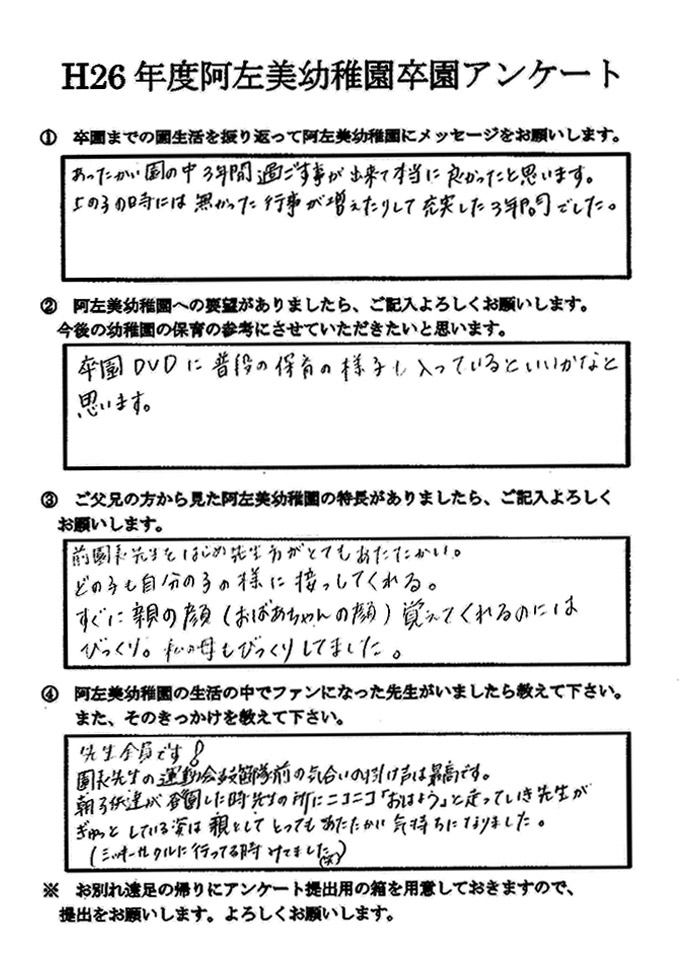 H26 年度阿左美幼稚園卒園アンケート
① 卒園までの園生活を振り返って阿左美幼稚園にメッセージをお願いします。
あったかい園の中3年間過ごす事が出来て本当に良かったと思います。
上の子の時には無かった行事が増えたりして充実した3年間でした。
② 阿左美幼稚園への要望がありましたら、ご記入よろしくお願いします。
今後の幼稚園の保育の参考にさせていただきたいと思います。
卒園DVDに普段の保育の様子も入っているといいかなと
思います。
③ ご父兄の方から見た阿左美幼稚園の特長がありましたら、ご記入よろしく
お願いします。
前園長先生をはじめ先生方がとてもあたたかい。
どの子も自分の子の様に接っしてくれる。
すぐに親の顔(おばあちゃんの顔)覚えてくれるのには
びっくり。私の母もびっくりしてました。
④ 阿左美幼稚園の生活の中でファンになった先生がいましたら教えて下さい。
また、そのきっかけを教えて下さい。
先生全員です!
園長先生の運動会鼓笛隊前の気合いの掛け声は最高です。
朝子供達が登園した時先生の所にニコニコ「おはよう」と走っていき先生が
ぎゅっとしている姿は親としてとってもあたたかい気持ちになりました。
(ミッキーサークルに行ってる時みてました(笑))
※ お別れ遠足の帰りにアンケート提出用の箱を用意しておきますので、
提出をお願いします。よろしくお願いします。